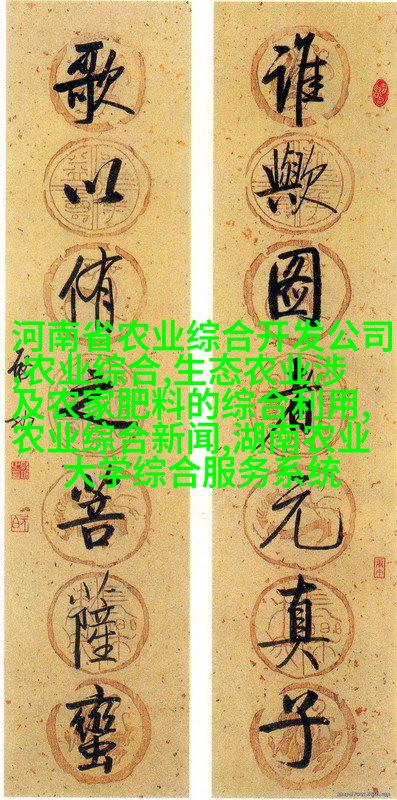 谁歟图者元真子
歌以侑之菩薩蠻
启功
河南省农业综合开发公司
,农业综合,生态农业涉
及农家肥料的综合利用,
农业综合新闻,湖南农业
大学综合服务系统